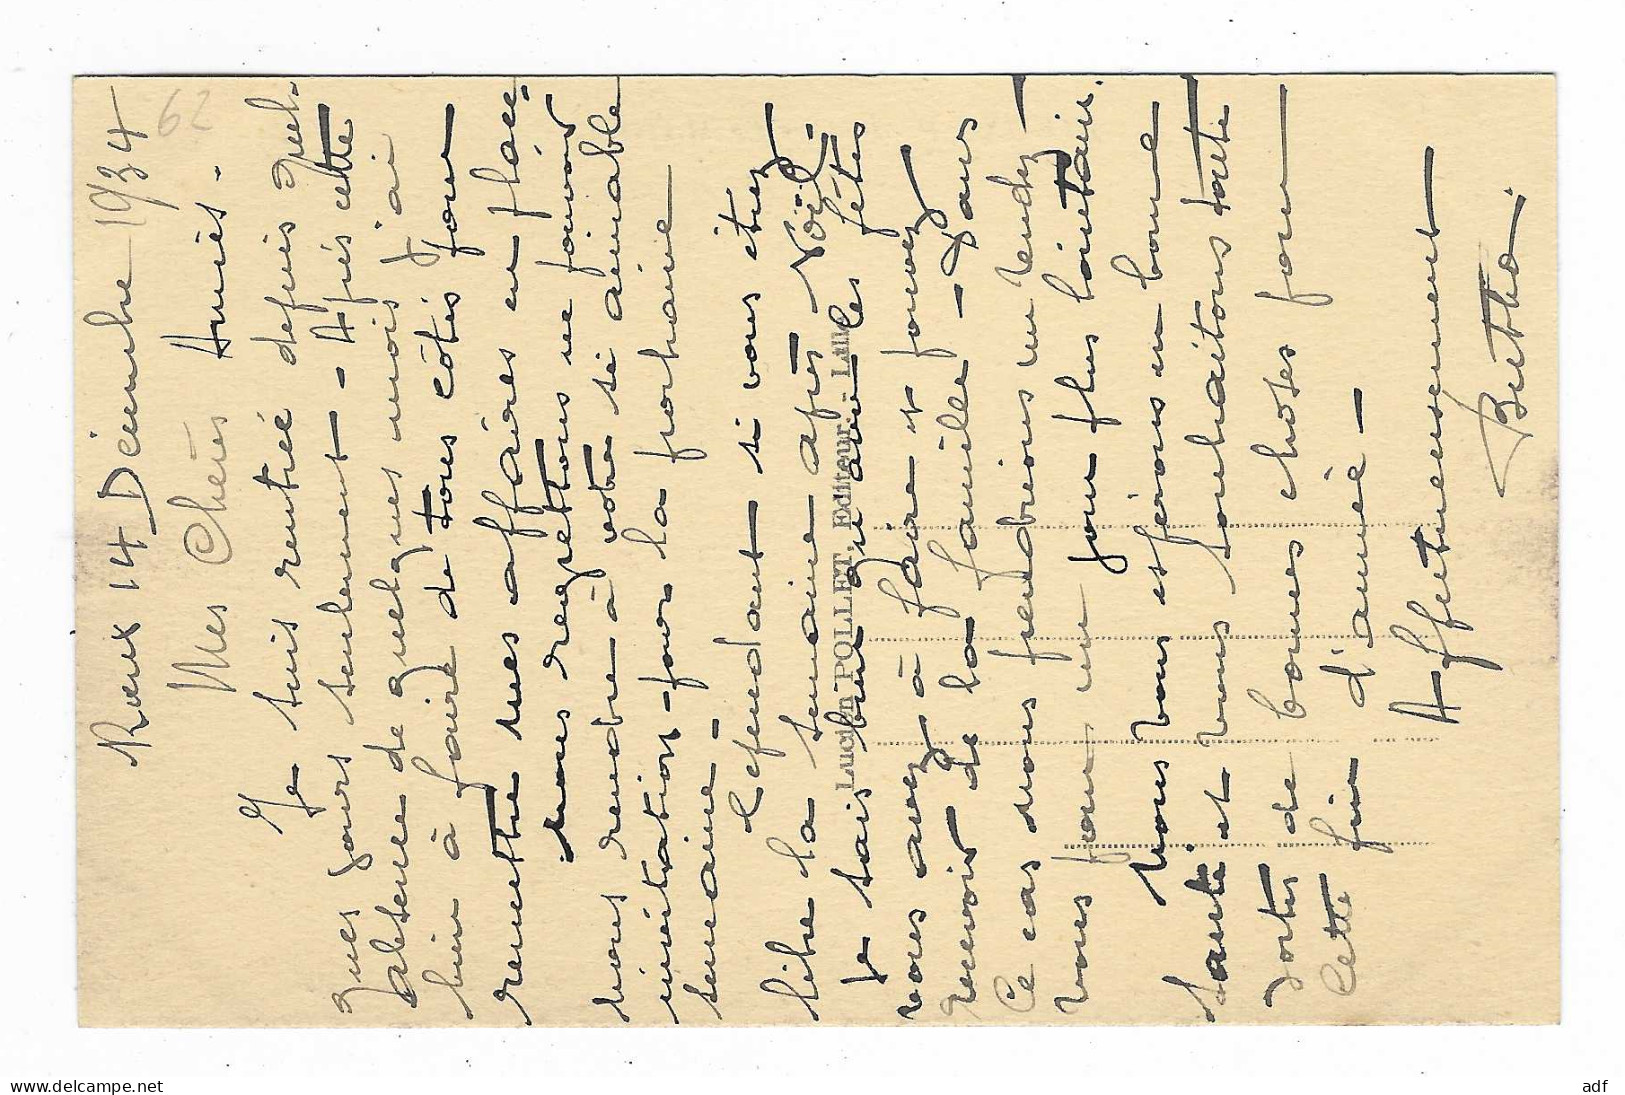 Rœux 14 Décembre 1934
62
Mes Chères Amies.
Je suis rentrée depuis quel-
ques jours seulement - Après cette
absence de quelques mois j'ai
bien à faire de tous côtés pour
remettre mes affaires en place.
Nous regrettons ne pouvoir
nous rendre à votre si aimable
invitation pour la prochaine
semaine -
Cependant si vous étiez
libre la semaine après Noël -
Je sais bien qu'avec les fêtes
vous avez à faire et pouvez
recevoir de la famille - Dans
ce cas nous prendrions un rendez-
vous pour un jour plus lointain.
Nous vous espérons en bonne
santé et vous souhaitons toute
sortes de bonnes choses pour
cette fin d'année -
Affectueusement
Bertha.
Lucien POLLET, Editeur - Lille
www.delcampe.net
adf